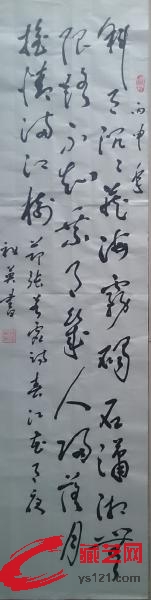 丙申冬
斜月沉沉藏海雾碣石潇湘无
限路不知乘月几人归落月
摇情满江树
节张若虚诗春江花月夜
书
藏艺网
ys121.com